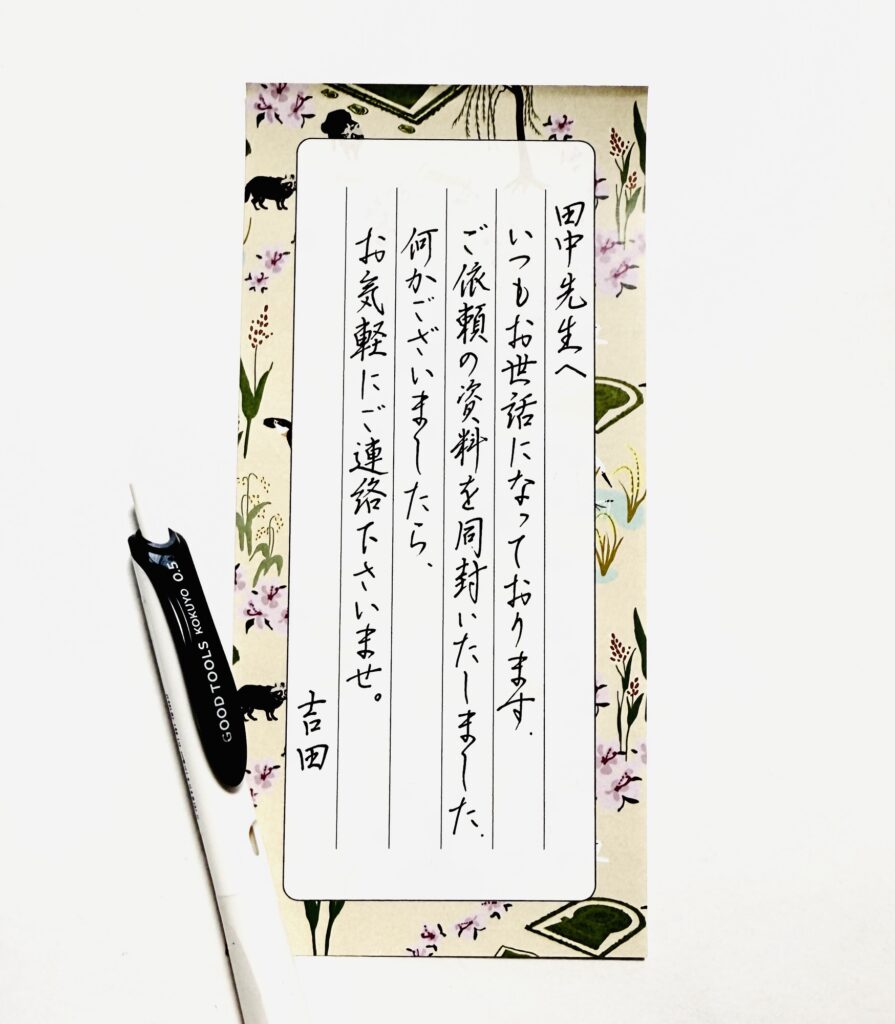 田中先生へ
いつもお世話になっております.
ご依頼の資料を同封いたしました.
何かございましたら、
お気軽にご連絡下さいませ。
吉田
GOOD TOOLS KOKUYO 0.5